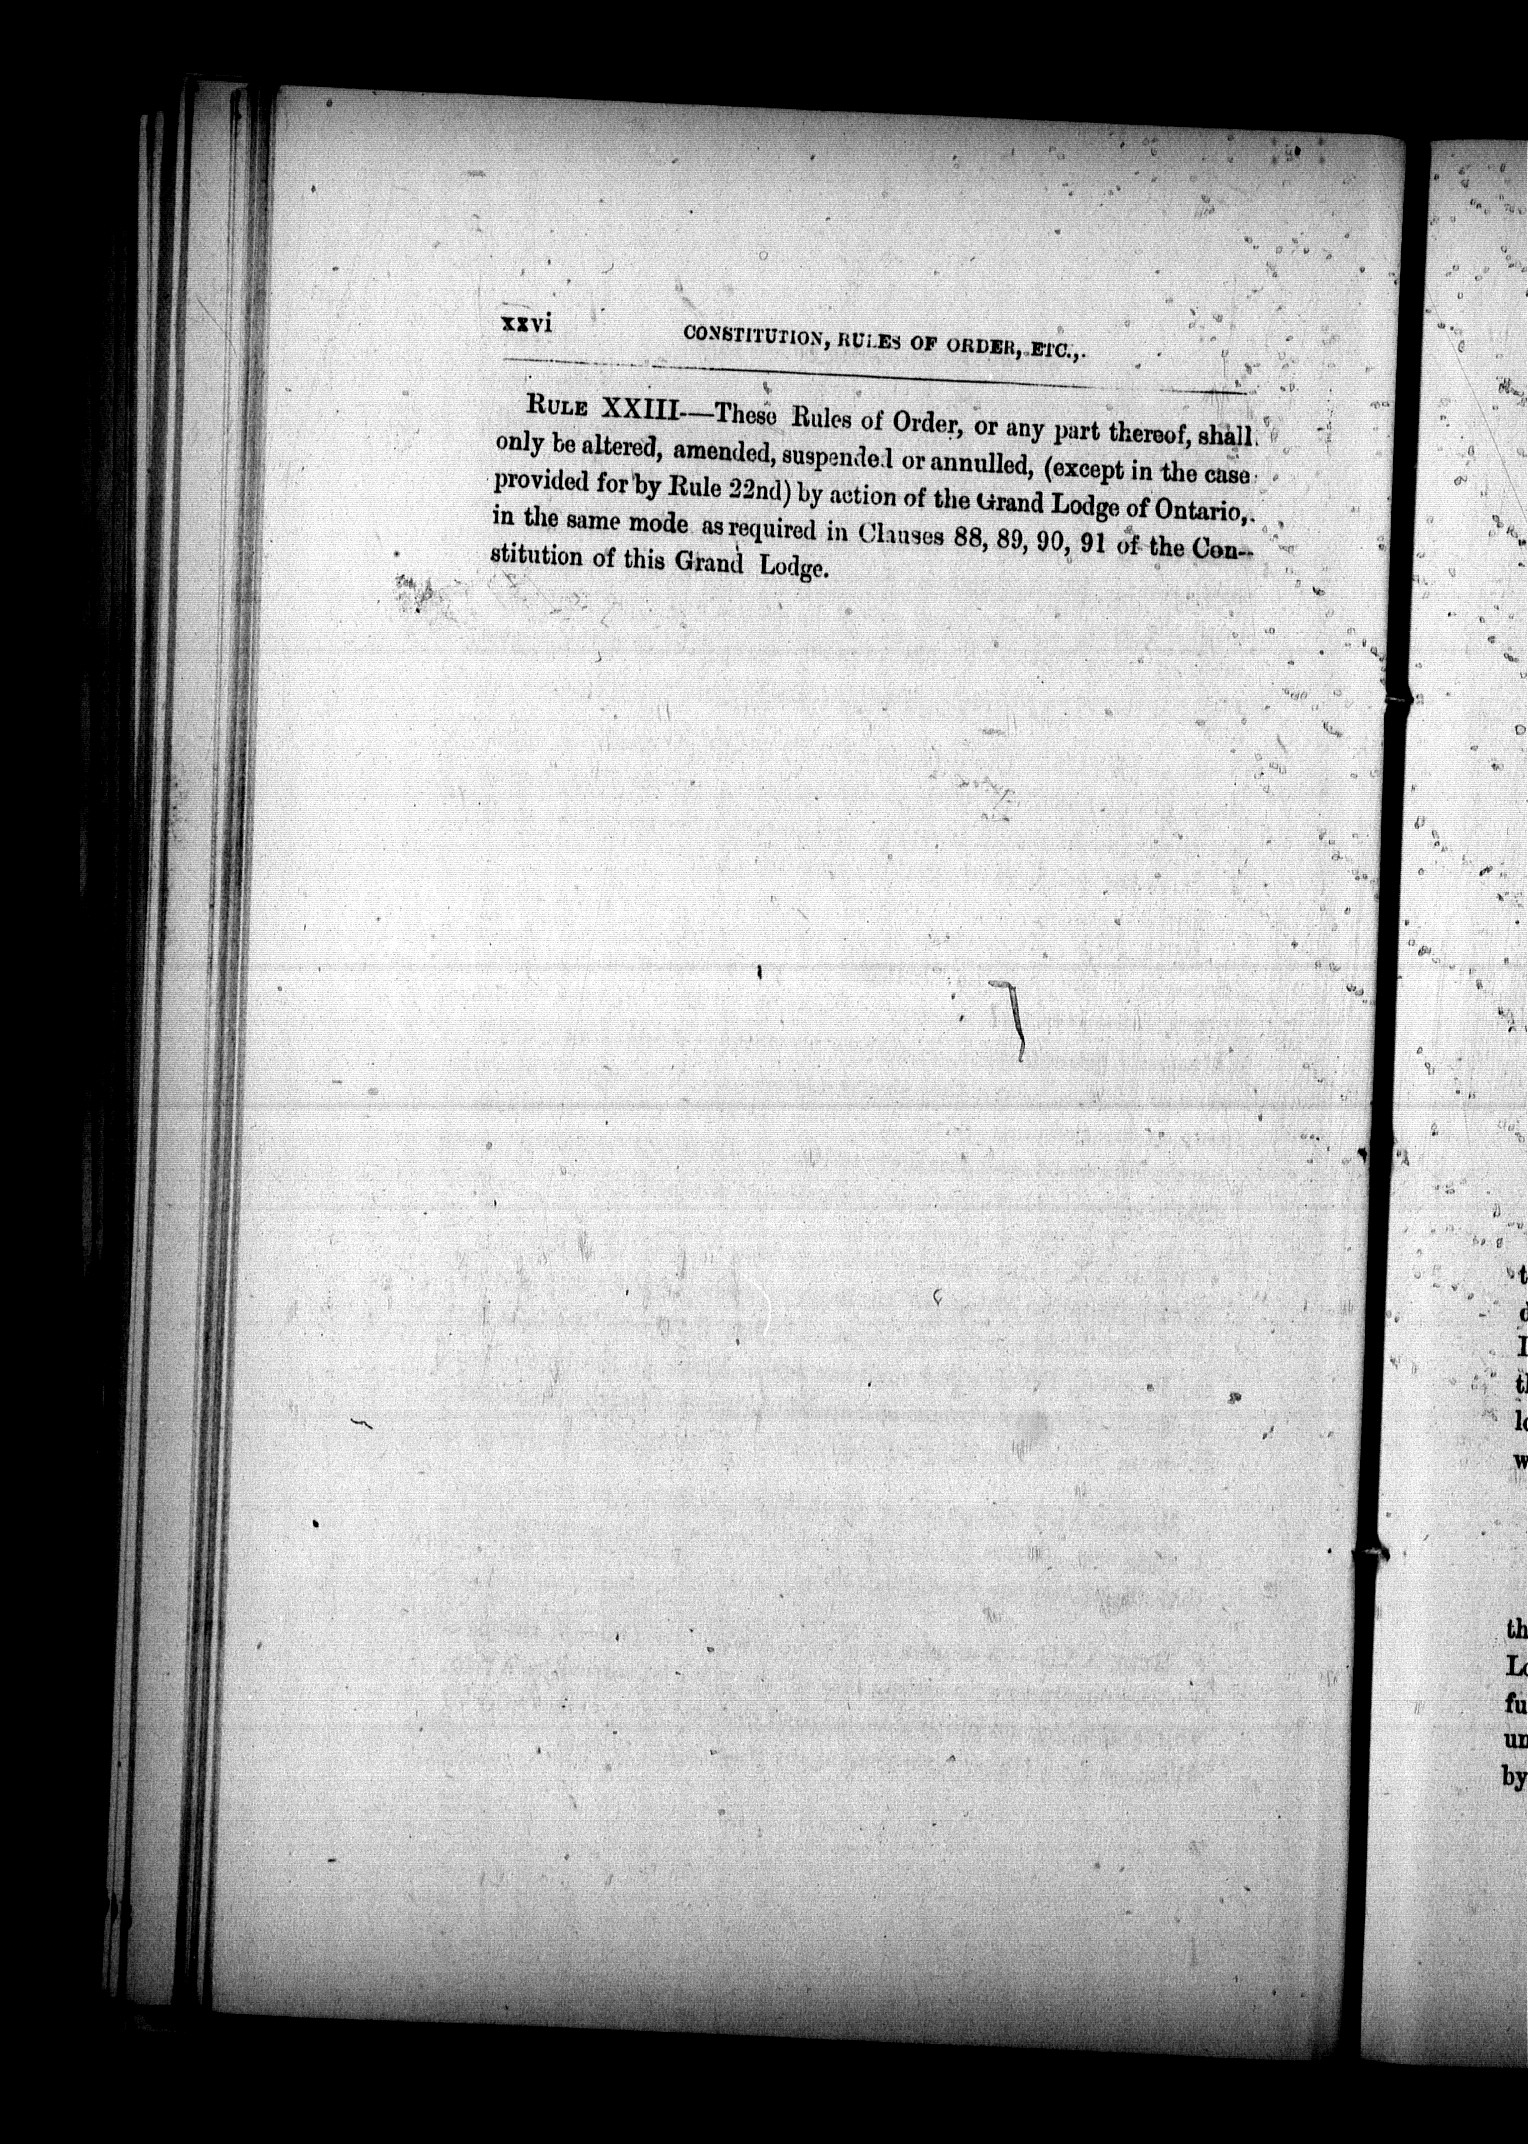 xxvi CONSTITUTION, RULES OF ORDER, ETC.,.
RULE XXIII—These Rules of Order, or any part thereof, shall
only be altered, amended, suspended or annulled, (except in the case
provided for by Rule 22nd) by action of the Grand Lodge of Ontario,.
in the same mode as required in Clauses 88, 89, 90, 91 of the Con-
stitution of this Grand Lodge.
th
Lo
fu
un
by